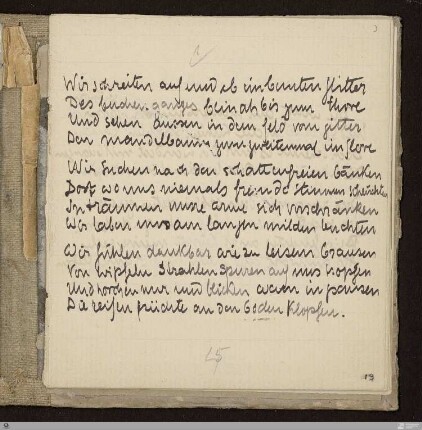 3
3/
Wir schreiten auf und ab im bunten flitter
Des buchen-ganges beinah bis zum thore
Und sehen aussen in dem feld vom gitter
Den mandelbaum zum zweitenmal im flore
Wir suchen nach den schattenfreien bänken
Dort wo uns niemals fremde stimmen scheuchten
In träumen unsre arme sich verschränken
Wir laben uns am langen milden leuchten
Wir fühlen dankbar wie zu leisem brausen
Von wipfeln strahlenspuren auf uns tropfen
Und horchen nur und blicken wenn in pausen
Die reifen früchte an den boden klopfen.
19